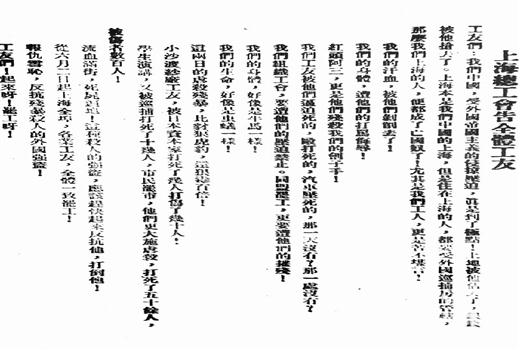 上海總工會告全體工友
工友們：我們中國，受外國帝國主義的侵掠壓迫，眞是到了極點！土地被他佔去了，
被他搶去了。上海本是我們中國的上海，但是住在上海的人，都要受外國巡捕房的管轄，
那麼我們上海的人，便都成了亡國奴了！尤其是我們工人，更是苦不堪言！
我們的汗血，被他們剝削去了！
我們的身體，遭他們的打罵侮辱！
紅頭阿三，更是他們殘殺我們的劊子手！
我們工友被他們逼迫死的，毆打死的，汽車壓死的，那一天沒有？那一處沒有？
我們組織工會，要遭他們的壓迫禁止。同盟罷工，更要遭他們的摧殘！
我們的身價，好像是牛馬一樣！
我們的生命，好像是虫蟻一樣！
這兩日的虐殺殘暴，比對待虎豹，還狠毒百倍！
小沙渡紗廠工友，被日本資本家打死了幾人打傷了幾十人！
學生演講，又被巡捕打死了十幾人，市民罷市，他們更大施虐殺，打死了五十餘人，
被傷者數百人！
流血滿街，死屍遍地！這種殺人的强盜，應該趕快起來反抗他，打倒他！
從六月二日起，上海全市，各業工友，全體一致罷工！
報仇雪恥，反抗殘暴殺人的外國强盜！
工友們！起來呀！罷工呀！